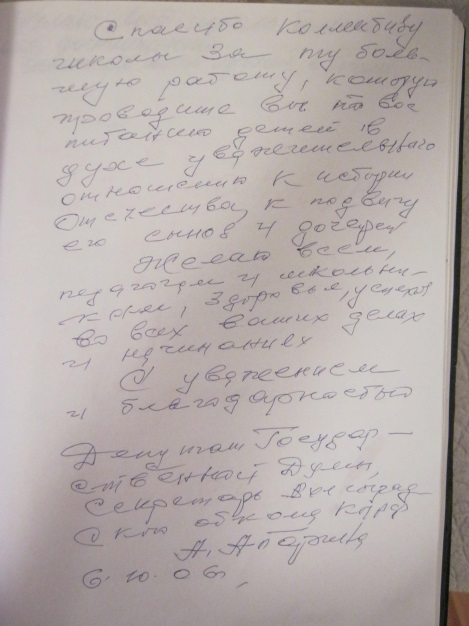 Спасибо коллективу
школы за ту боль-
шую работу, которую
проводите Вы по вос
питанию детей в
духе уважительного
отношению к истории
Отечества, к подвигу
его сынов и дочерей
Желаю всем,
педагогам и школьни-
кам, здоровья, успехов
во всех ваших делах
и начинаниях
С уважением
и благодарностью
Депутат Государ-
ственной Думы,
Секретарь Волгоград
ского обкома КПРФ
А. Апарина
6.10.06